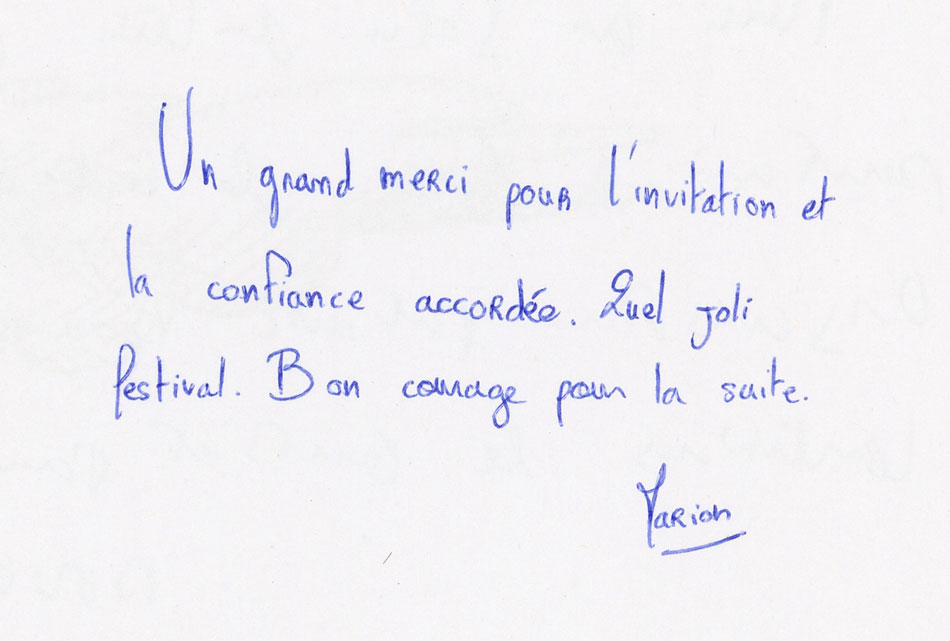 Un grand merci pour l'invitation et
la confiance accordée. Quel joli
festival. Bon courage pour la suite.
Marion